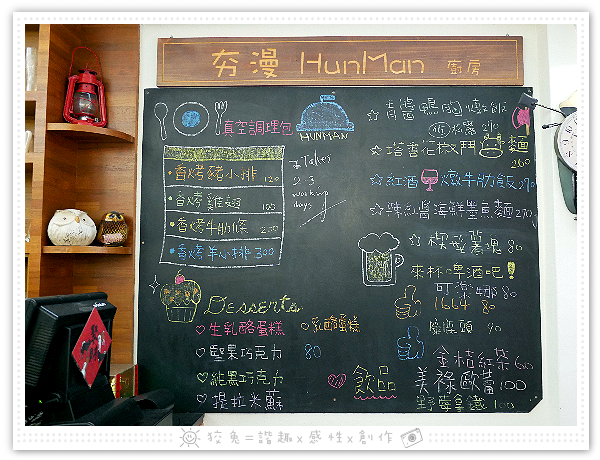 夯漫 HunMan 廚房
真空調理包
HUNMAN
香烤豬小排 120
香烤雞翅 100
香烤牛肋條 200
香烤羊小排 300
Takes
2-3
workup
days
青醬鴨胸燉飯
270
麵
260
紅酒燉牛肋飯 290
辣紅醬海鮮墨魚麵 270
80
來杯啤酒吧!
可樂娜 80
1664 80
90
金桔紅茶 60
飲品 美祿歐蕾 100
野莓拿鐵 100
Desserts
生乳酪蛋糕
乳酪蛋糕
堅果巧克力 80
純黑巧克力
提拉米蘇
狡兔=諧趣x感性x創作